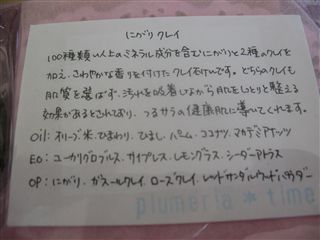 にがり クレイ
100種類以上のミネラル成分を含むにがりと2種のクレイを
加え、さわやかな香りを付けたクレイせけんです。どちらのクレイも
肌質を選ばず、汚れを吸着しながら肌をしっとりと整える
効果があるとされており、つるサラの健康肌に導いてくれます。
Oil: オリーブ、米、ひまわり、ひまし、パーム、ココナッツ、マカデミアナッツ
EO: ユーカリグロブルス、サイプレス、レモングラス、シーダーアトラス
OP: にがり、ガスールクレイ、ローズクレイ、レッドサンダルウッドパウダー
plumeria * time